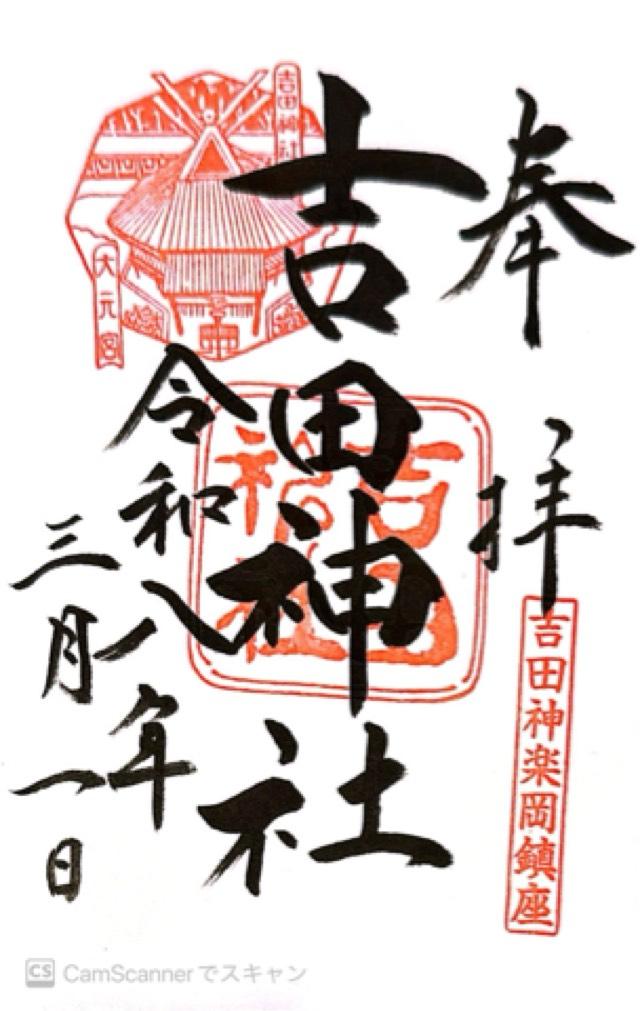 奉拝
吉田神楽岡鎮座
吉田神社
吉田神社
吉田神社
大元宮
令和八年
三月一日
CS CamScannerでスキャン